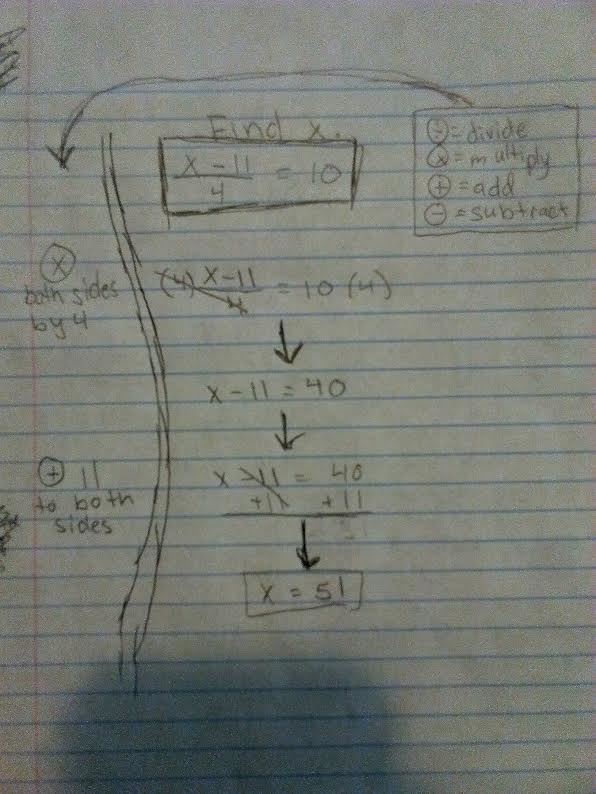 Find x.
x - 11
4
= 10
÷ = divide
× = multiply
+ = add
- = subtract
× both sides by 4
(4) x - 11
4
= 10 (4)
x - 11 = 40
+ 11
to both
sides
x - 11 = 40
+11 +11
x = 51